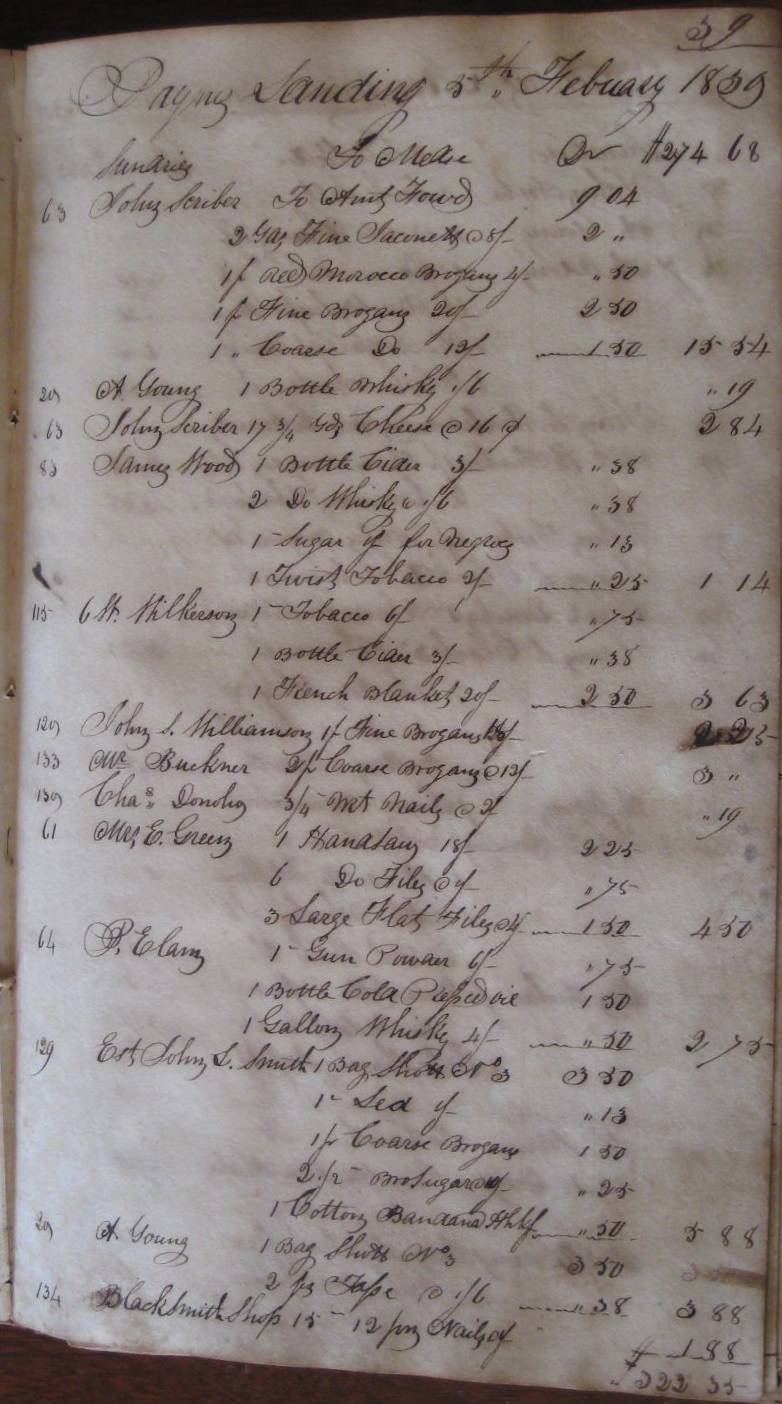 39
Paynes Landing 5th Febuary 1839
Sundries To Mdse Dr $274 68
63 John Scriber To Amt Fowd 9 04
2 Yds Fine Jaconett @ 8/- 2 "
1 p Red Morocco Brogans 4/- " 50
1 p Fine Brogans 20/- 2 50
1 " Coarse Do 12/- 1 50 15 54
20 A Young 1 Bottle Whisky 1/6 " 19
63 John Scriber 17 3/4 lbs Cheese @ 16 ¢ 2 84
83 James Wood 1 Bottle Cider 3/- " 38
2 Do Whisky @ 1/6 " 38
1 - Sugar 1/ for Negroes " 13
1 Twist Tobacco 2/- " 25 1 14
115 6 W. Wilkerson 1 - Tobacco 6/- " 75
1 Bottle Cider 3/- " 38
1 French Blanket 20/- 2 50 3 63
120 John S. Williamson 1 p Fine Brogans 18/- 2 25
133 Mr Buckner 2 p Coarse Brogans @ 12/- 3 "
130 Chas. Donoho 3/4 Wrt Nails @ 2/- " 19
61 Mrs E. Green 1 Handsaw 18/- 2 25
6 Do Files @ 1/- " 75
3 Large Flat Files @ 4/- 1 50 4 50
64 P. Elam 1 - Gun Powder 6/- " 75
1 Bottle Cold Presed oil 1 50
1 Gallon Whisky 4/- " 50 2 75
129 Est John L. Smith 1 Bag Shott No 3 3 50
1 - Led 1/- " 13
1 p Coarse Brogans 1 50
2 1/2 - Bro Sugar @ " 25
1 Cotton Bandana Hhkf " 50 5 88
20 A. Young 1 Bag Shott No 3 3 50
2 ps Tape @ 1/6 " 38 3 88
134 Blacksmith Shop 15 - 12 pny Nails @ 1/ 1 88
$ 322 35